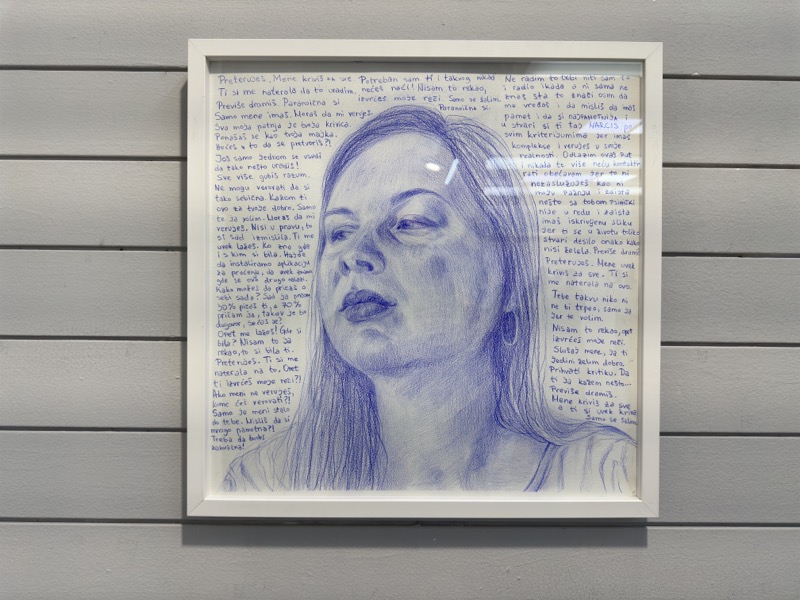 Preteruješ. Mene kriviš za sve.
Ti si me naterala da to uradim.
Previše dramiš. Paranoična si
Samo mene imaš. Moraš da mi veruješ.
Sva moja patnja je tvoja krivica.
Ponašaš se kao tvoja majka.
Hoćeš u to da se pretvoriš?!
Još samo jednom se usudi
da tako nešto uradiš!
Sve više gubiš razum.
Ne mogu verovati da si
tako sebična. Kažem ti
ovo za tvoje dobro. Samo
te ja volim. Moraš da mi
veruješ. Nisi u pravu, to
si sad izmislila. Ti me
uvek lažeš. Ko zna gde
i s kim si bila. Hajde
da instaliramo aplikaciju
za praćenje, da uvek znamo
gde se ovo drugo nalazi.
Kako možeš da pričaš o
sebi sada? Sad ja pričam
30% pričaš ti, a 70%
pričam ja, takav je bio
dogovor, sećaš se?
Opet me lažeš! Gde si
bila? Nisam to ja
rekao, to si bila ti.
Preteruješ. Ti si me
naterala na to. Opet
ti izvrćeš moje reči?!
Ako meni ne veruješ,
kome ćeš verovati?!
Samo je meni stalo
do tebe. Misliš da si
mnogo pametna?!
Treba da budeš
zahvalna!
Potreban sam ti i takvog nikad
nećeš naći! Nisam to rekao,
izvrćeš moje reči. Samo se šalim.
Paranoična si.
Ne radim to tebi niti sam
i radio ikada a ni sama ne
znaš šta to znači osim da
me vređaš i da misliš da imaš
pamet i da si NAJPAMETNIJA i
u stvari si ti taj NARCIS po
svim kriterijumima jer imaš
komplekse i veruješ u svoje
realnosti. Odlazim ovaj put
i kontakta te više neću
rati obećavam jer to ni
nezaslužuješ kao ni
moju pažnju i zaista
nešto sa tobom psihički
nije u redu i zaista
imaš iskrivljenu sliku
jer ti se u životu toliko
stvari desilo onako kako
nisi želela. Previše dramiš
Preteruješ. Mene uvek
kriviš za sve. Ti si
me naterala na ovo.
Tebe takvu niko ni
ne bi trpeo, samo ja
jer te volim.
Nisam to rekao, opet
izvrćeš moje reči.
Slušaj mene, ja ti
jedini želim dobro.
Prihvati kritiku. Da
ti ja kažem nešto...
Previše dramiš.
Mene kriviš za sve
a ti si uvek kriva
Samo se šalim